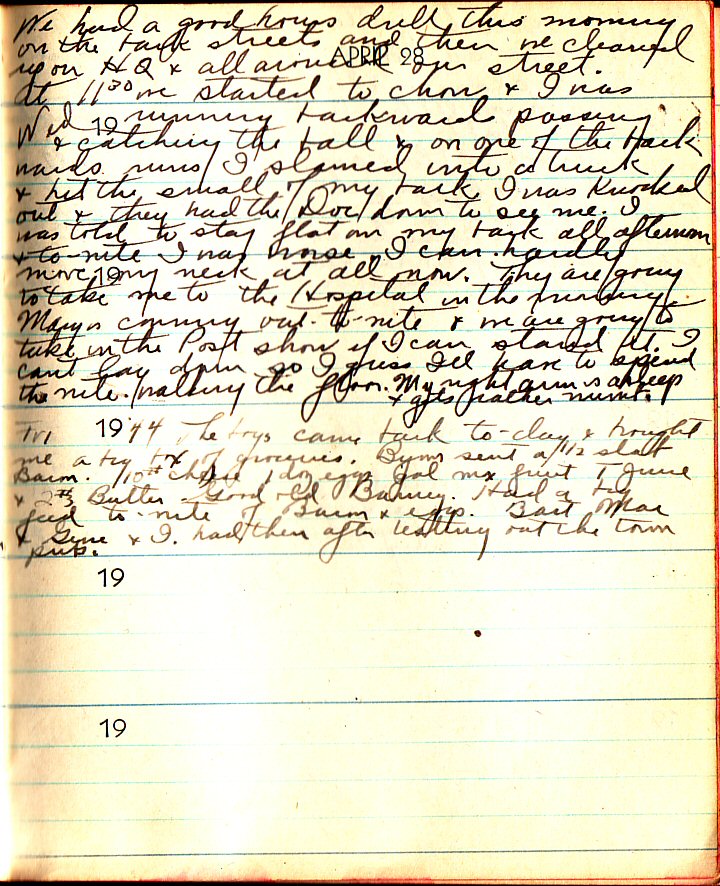 We had a good hours drill this morning
on the back streets and then we cleaned
APRIL 28
up on HQ & all around our street.
At 11 30 we started to chow & I was
Wed 19 running backwards passing
& catching the ball & on one of the back
wards runs I slamed into a truck
& hit the small of my back I was knocked
out & they had the Doc down to see me. I
was told to stay flat on my back all afternoon
& to-nite I was worse, I can hardly
move my neck at all now. They are going
19
to take me to the Hospital in the morning.
Mary is coming out to-nite & we are going to
take in the Post show if I can stand it. I
cant lay down so I guess Ill have to spend
the nite walking the floor. My right arm is asleep
& gets rather numb.
Fri 1944 The boys came back to-day & brought
me a big box of groceries. sent a 1/2 slab
Bacon. 10# cheese 1 doz eggs Gal mx fruit T Juice
& 2# Butter Good old Barney. Had a big
feed to-nite of Bacon & eggs. Bart Mac
& Gene & I. had then after letting out the town
pubs.
19
19